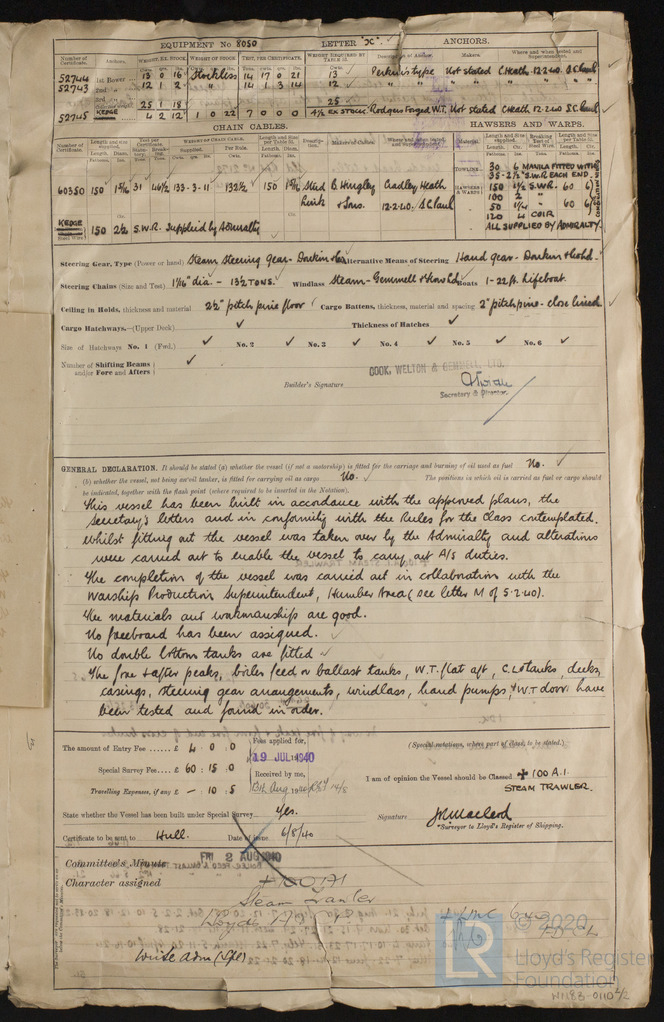 EQUIPMENT No. 8050 LETTER "X" ANCHORS.
Number of Certificate. Anchors. WEIGHT, EX. STOCK WEIGHT OF STOCK TEST, PER CERTIFICATE. WEIGHT REQUIRED BY TABLE Description of Anchor. Makers. Where and when tested and Superintendent.
52744 1st Bower 13 0 16 Stockless 14 17 0 21 13 Perkins type Not stated C. Heath 12.2.40 S.C. Paul
52743 2nd " 12 1 2 " 14 1 3 14 12 " " " " " "
3rd "
25 1 18 25
52745 KEDGE 4 2 12 1 0 22 7 0 0 0 4½ EX STOCK Rodgers Forged W.T. Not stated C. Heath 12.2.40 S.C. Paul
CHAIN CABLES. HAWSERS AND WARPS.
60350 150 1 5/16 31 46½ 133-3-11 132½ 150 1 5/16 Stud Link B. Hingley & Sons. Cradley Heath 12.2.40. S.C. Paul
KEDGE 150 2½ S.W.R. Supplied by Admiralty
TOWLINES 30 6 MANILA FITTED WITH
35-2½" S.W.R. EACH END.
HAWSERS & WARPS 150 S.W.R. 60 6
100 2 "
50 " 60 6
120 4 COIR
ALL SUPPLIED BY ADMIRALTY.
Steering Gear, Type (Power or hand) Steam steering gear - Donkin & Co Alternative Means of Steering Hand gear - Donkin & Co Ltd.
Steering Chains (Size and Test) 1 1/16" dia. - 13½ TONS. Windlass Steam - Gemmell & Frow Ld Boats 1 - 22ft. Lifeboat.
Ceiling in Holds, thickness and material 2½" pitch pine floor Cargo Battens, thickness, material and spacing 2" pitch pine - close lined
Cargo Hatchways.—(Upper Deck) Thickness of Hatches
Size of Hatchways No. 1 (Fwd.) No. 2 No. 3 No. 4 No. 5 No. 6
Number of Shifting Beams and/or Fore and Afters
COOK, WELTON & GEMMELL, LTD.
Builder's Signature
Secretary & Director.
GENERAL DECLARATION. It should be stated (a) whether the vessel (if not a motorship) is fitted for the carriage and burning of oil used as fuel No.
(b) whether the vessel, not being an oil tanker, is fitted for carrying oil as cargo No. The positions in which oil is carried as fuel or cargo should
be indicated, together with the flash point (where required to be inserted in the Notation).
This vessel has been built in accordance with the approved plans, the
Secretary's letters and in conformity with the Rules for the Class contemplated.
Whilst fitting out the vessel was taken over by the Admiralty and alterations
were carried out to enable the vessel to carry out A/S duties.
The completion of the vessel was carried out in collaboration with the
Warship Production Superintendent, Humber Area (see letter M of 5.2.40).
The materials and workmanship are good.
No freeboard has been assigned.
No double bottom tanks are fitted
The fore & after peaks, boiler feed or ballast tanks, W.T. flat aft, C.L. O tanks, decks,
casings, steering gear arrangements, windlass, hand pumps, & W.T. doors have
been tested and found in order.
The amount of Entry Fee ...... £ 4 : 0 : 0 Fees applied for, (Special notations, where part of class, to be stated.)
19 JUL 1940
Special Survey Fee ... £ 60 : 15 : 0 Received by me, I am of opinion the Vessel should be Classed ✠ 100 A.1.
STEAM TRAWLER.
Travelling Expenses, if any £ — : 10 : 5 13th Aug 1940
State whether the Vessel has been built under Special Survey Yes. Signature J. McMacleod
Surveyor to Lloyd's Register of Shipping.
Certificate to be sent to Hull. Date of issue 6/8/40
Committee's Minute FRI 2 AUG 1940
Character assigned +100A1
Steam Trawler
Lloyd's A & CP
+ LMC 6.40
Write Adm (Spl)
© 2020
LR
Lloyd's Register
Foundation
W1183-0110 2/2